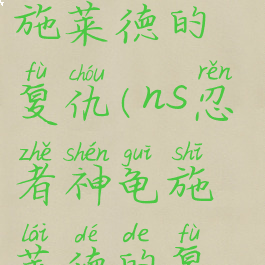 施莱德的
fù chóu rěn
复仇(ns忍
zhě shén guī shī
者神龟施
lái dé de fù
莱德的复